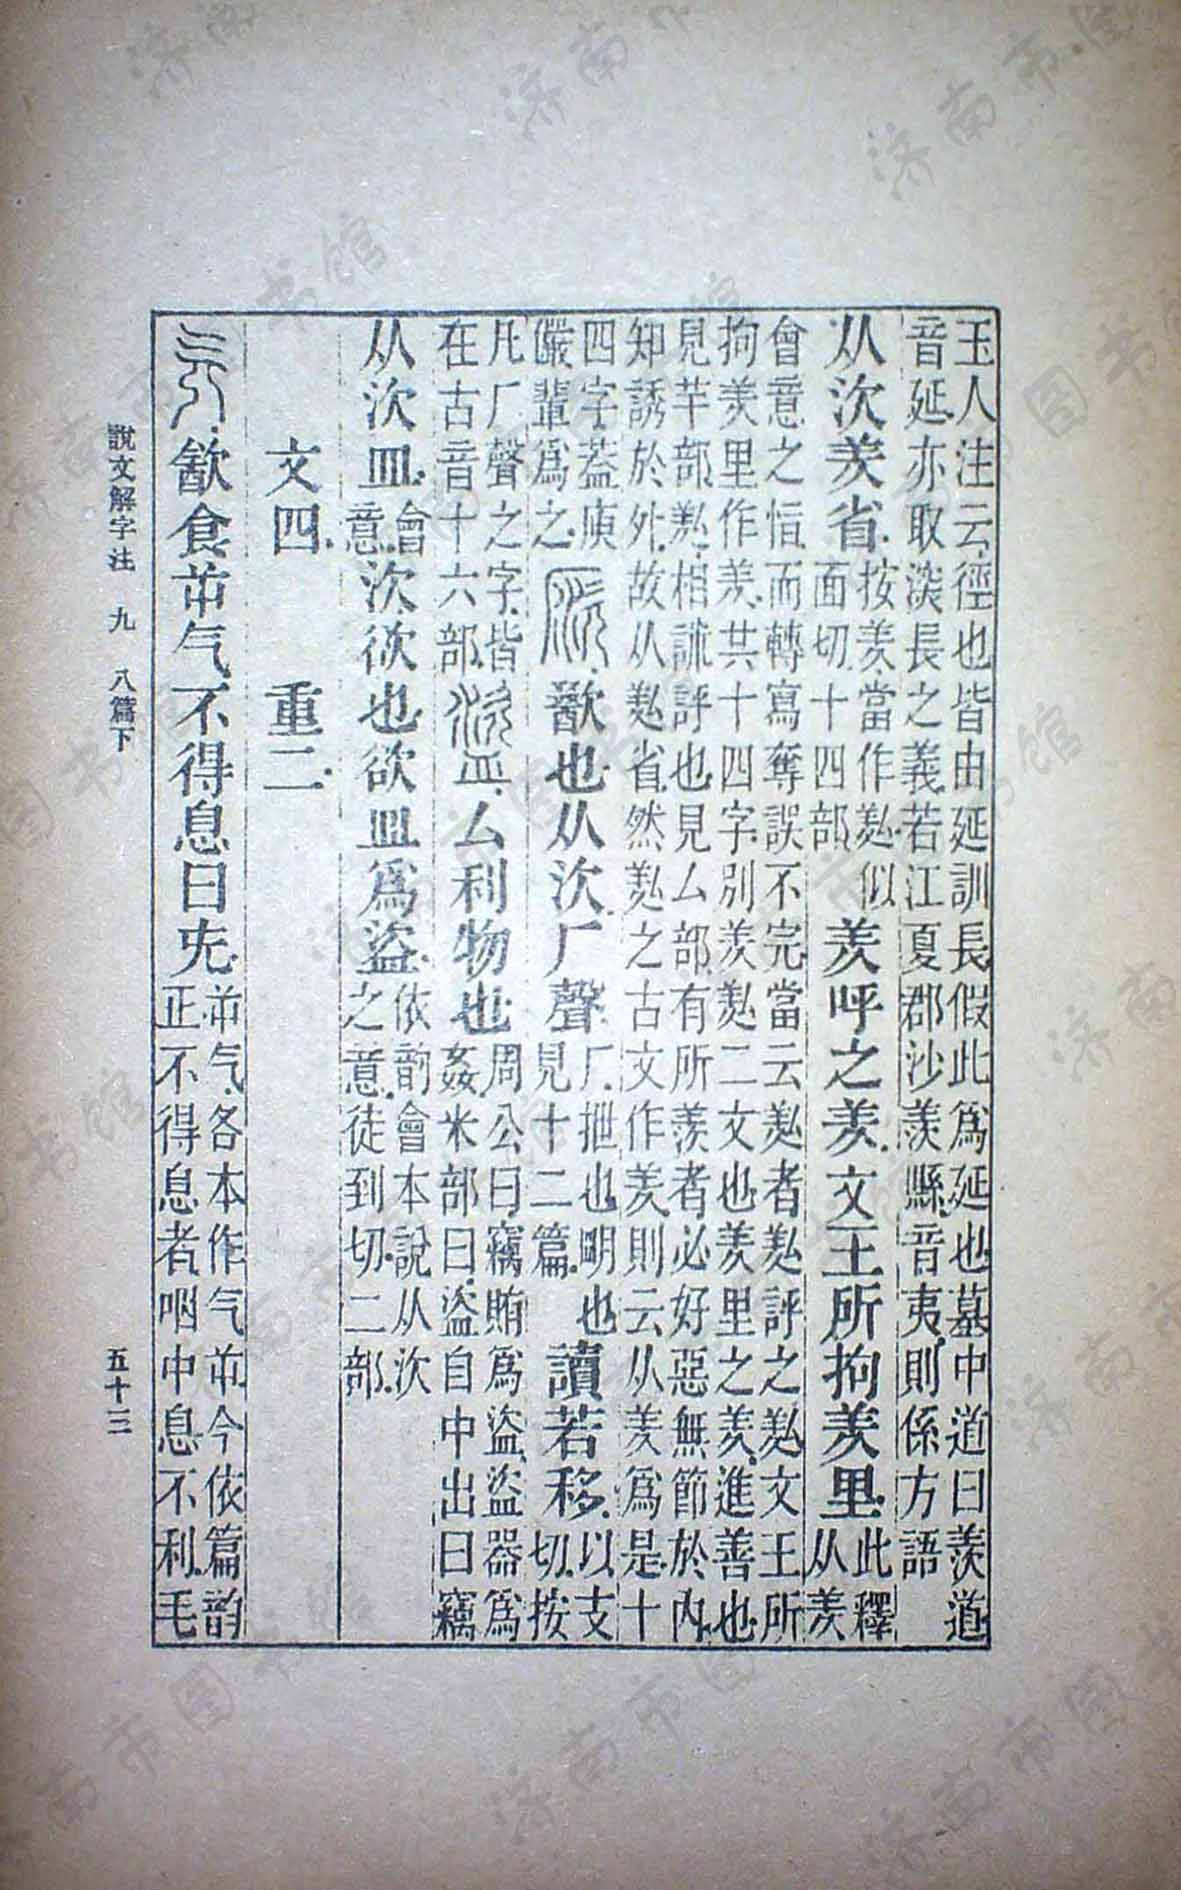 玉人注云徑也皆由延訓長假此爲延也墓中道曰羨道
音延亦取淡長之義若江夏郡沙羨縣音夷則係方語
从㳄羨省按羨當作羑似面切十四部羨呼之羨文王所拘羑里此釋从羨
會意之恉而轉寫奪誤不完當云羑者羑評之羑文王所
拘羑里作羑共十四字別羨羑二文也羑里之羑進善也
見羊部羑相訹評也見厶部有所羨者必好惡無節於內
知誘於外故从羑省然羑之古文作羑則云从羑爲是十
四字葢庾儼輩爲之㳄歠也从㳄厂聲厂抴也明也見十二篇讀若移以支切按
凡厂聲之字皆在古音十六部盜厶利物也周公曰竊賄爲盜盜器爲姦米部曰盜自中出曰竊
从㳄皿會意㳄欲也欲皿爲盜依韵會本說从㳄之意徒到切二部
文四 重二
㱃食屰气不得息曰旡屰气各本作气屰今依篇韵正不得息者咽中息不利毛
說文解字注 九 八篇下
五十三